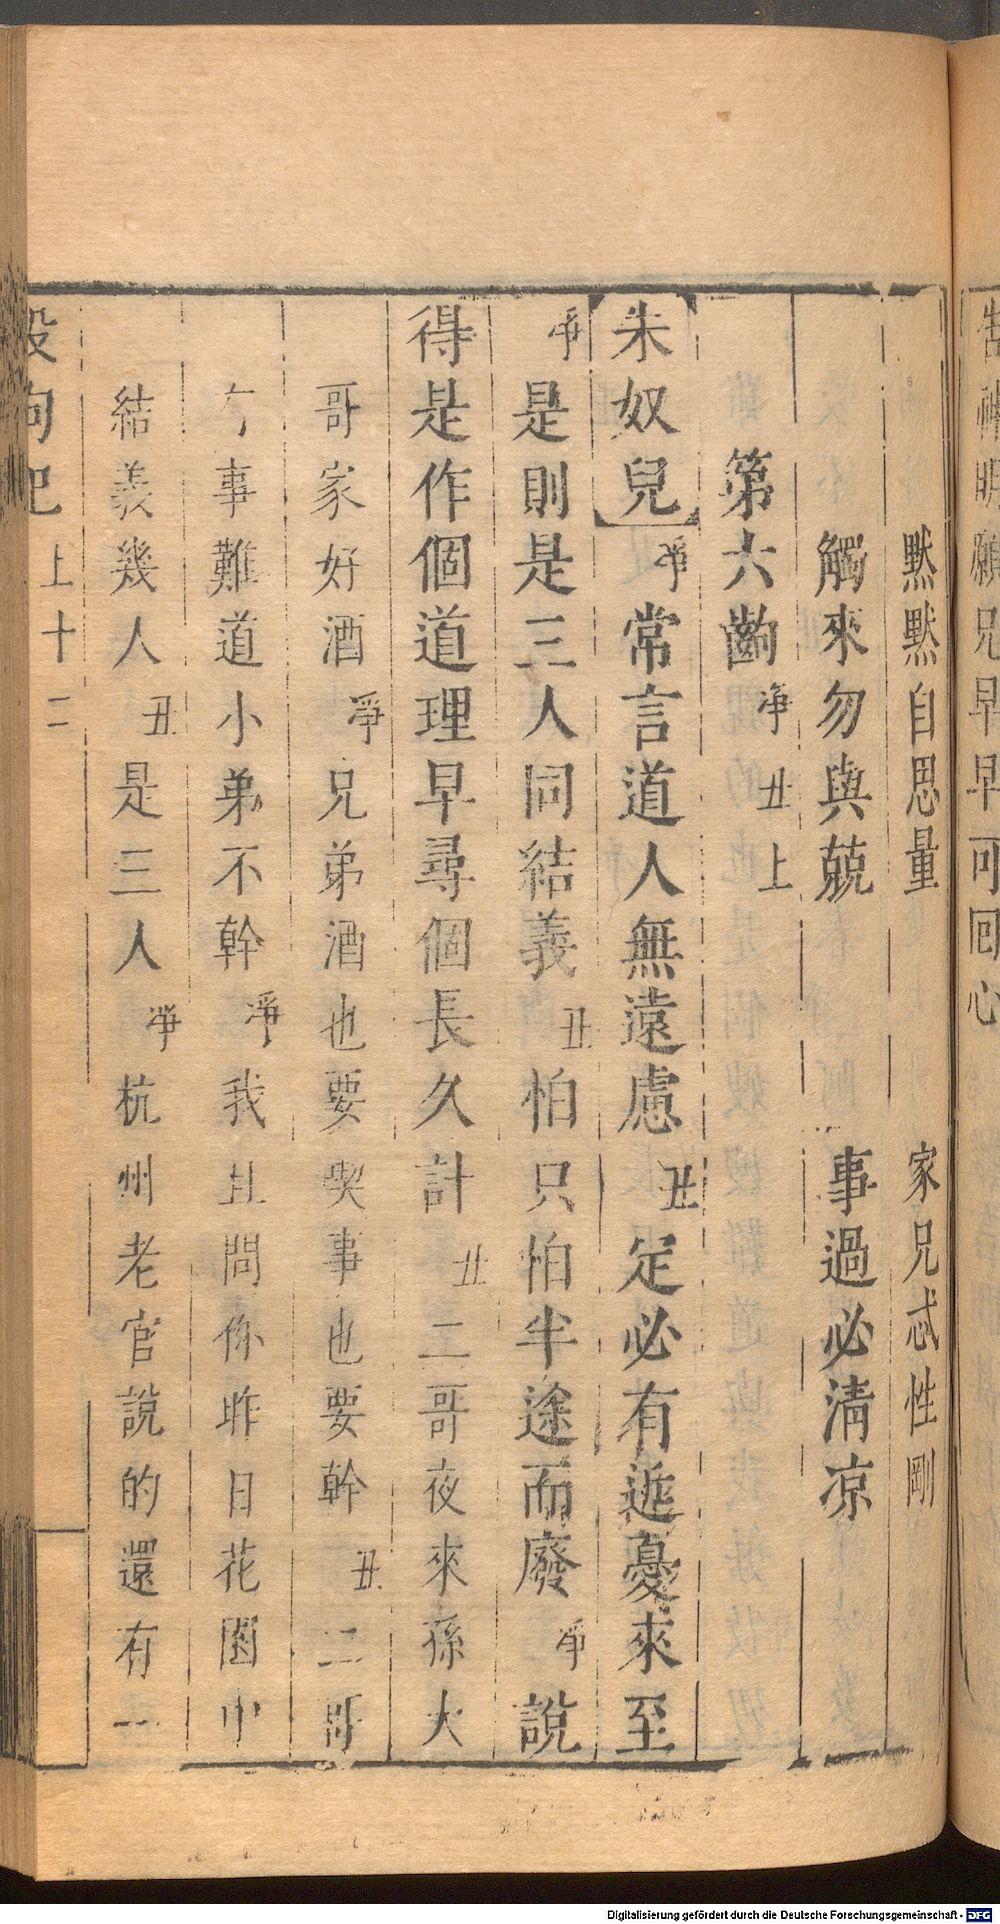 告神明願兄早早可回心
默默自思量　家兄忒性剛
觸來勿與兢　事過必清凉
第六齣 淨丑上
朱奴兒 淨 常言道人無遠慮 丑 定必有近憂來至
淨 是則是三人同結義 丑 怕只怕半途而廢 淨 說
得是作個道理早尋個長久計 丑 二哥夜來孫大
哥家好酒 淨 兄弟酒也要喫事也要幹 丑 二哥
有事難道小弟不幹 淨 我且問你昨日花園中
結義幾人 丑 是三人 淨 杭州老官說的還有一
殺狗記 上 十二
Digitalisierung gefördert durch die Deutsche Forschungsgemeinschaft - DFG